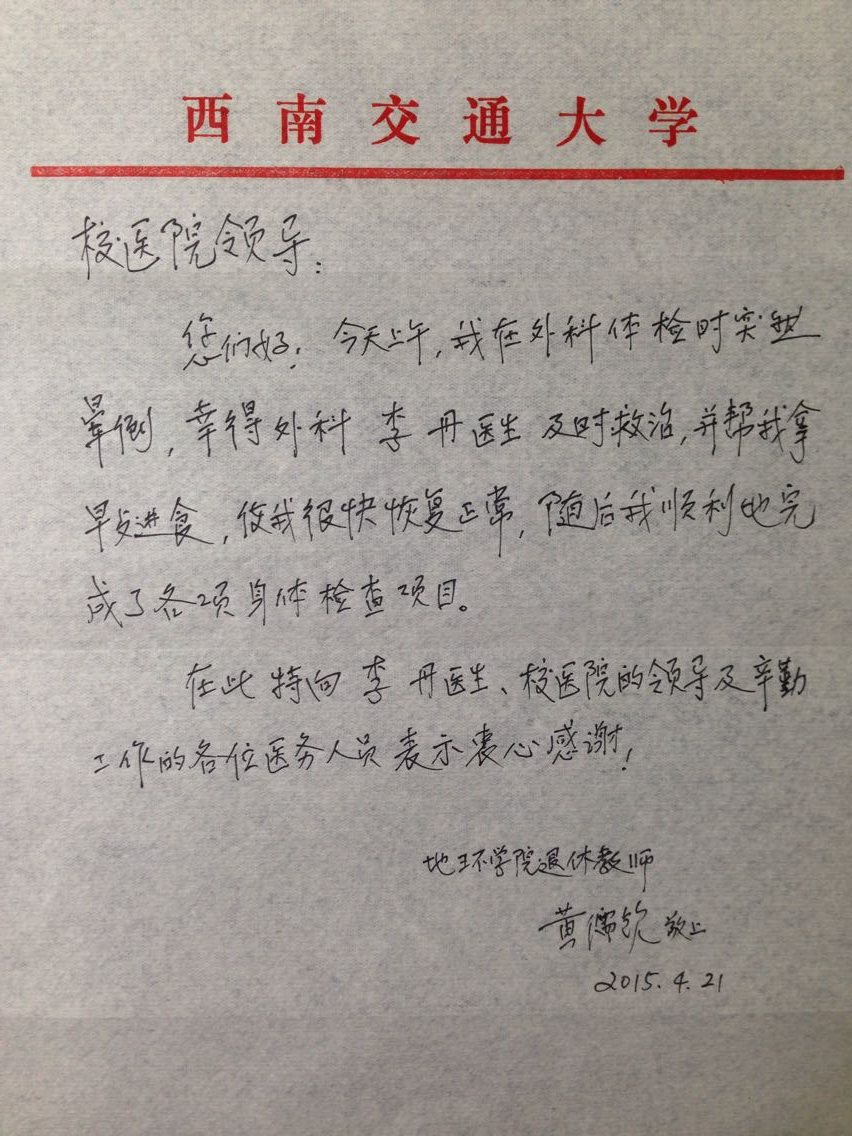 西南交通大学
校医院领导:
您们好!今天上午,我在外科体检时突然
晕倒,幸得外科李丹医生及时救治,并帮我拿
早点进食,使我很快恢复正常,随后我顺利地完
成了各项身体检查项目。
在此特向李丹医生、校医院的领导及辛勤
工作的各位医务人员表示衷心感谢!
地环学院退休教师
黄儒钦敬上
2015.4.21